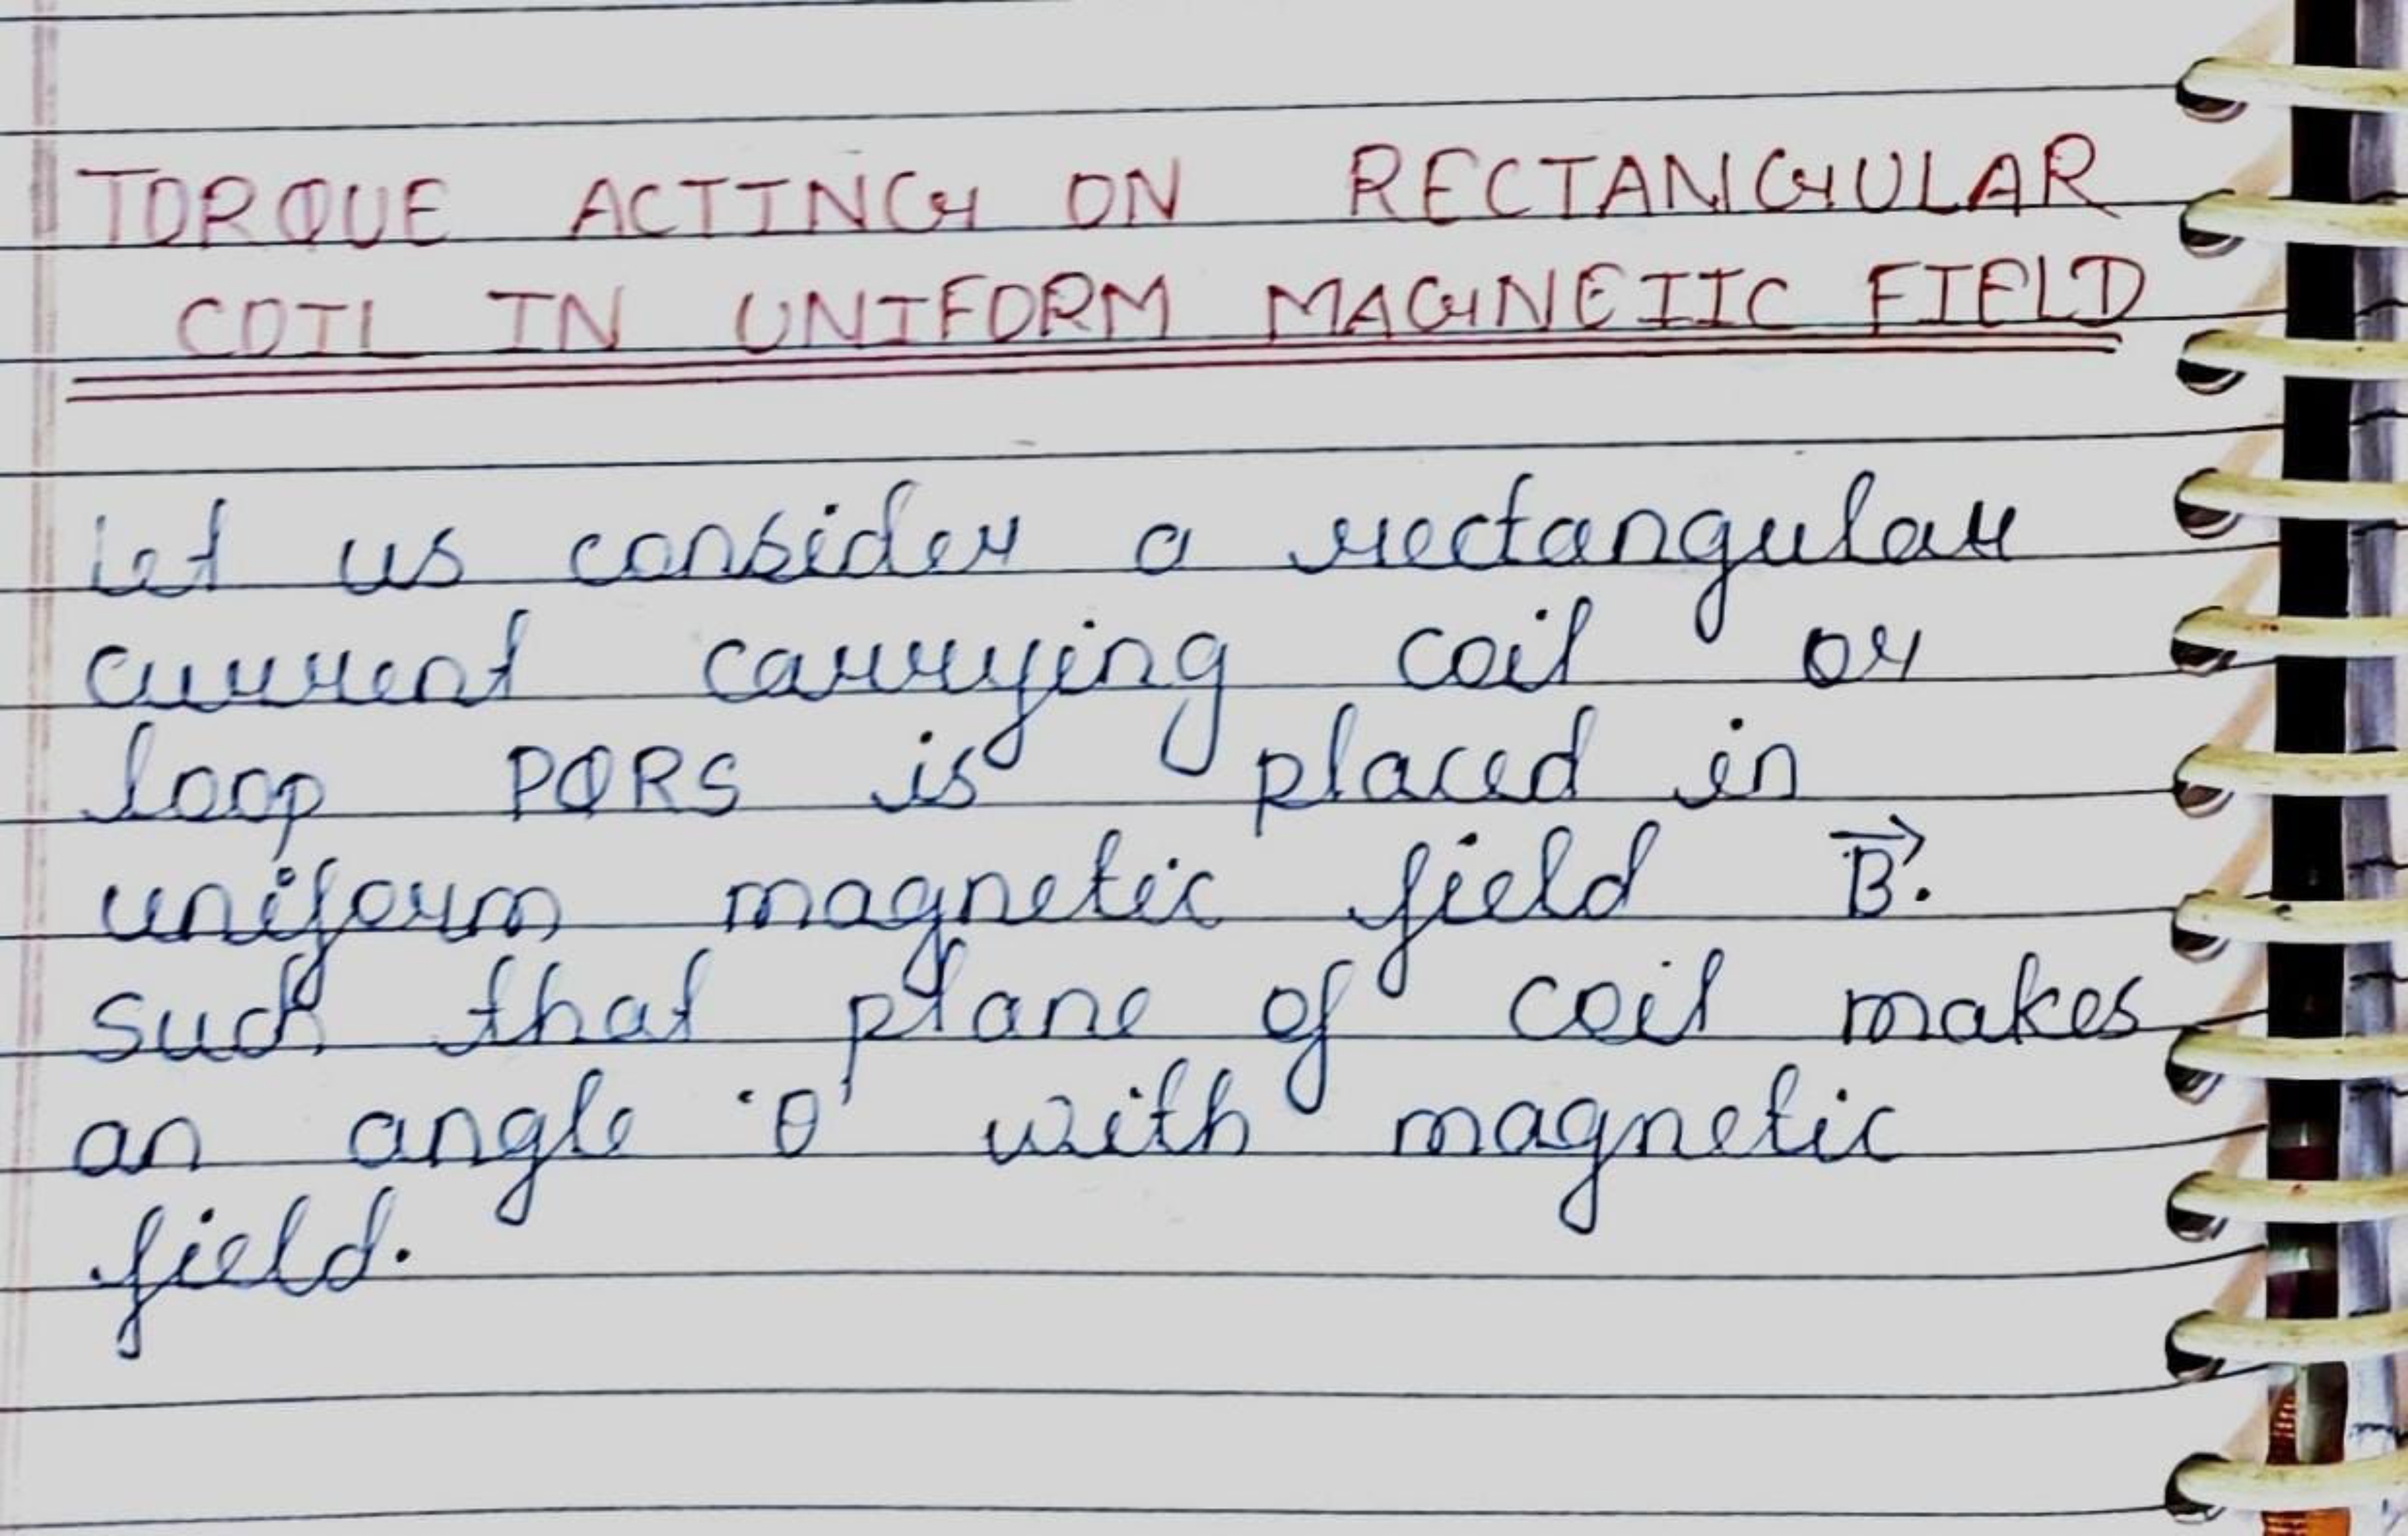 TORQUE ACTING ON RECTANGULAR
COIL IN UNIFORM MAGNETIC FIELD
let us consider a rectangular
current carrying coil or
loop PQRS is placed in
uniform magnetic field \(\vec{B}\).
such that plane of coil makes
an angle 'θ' with magnetic
field.